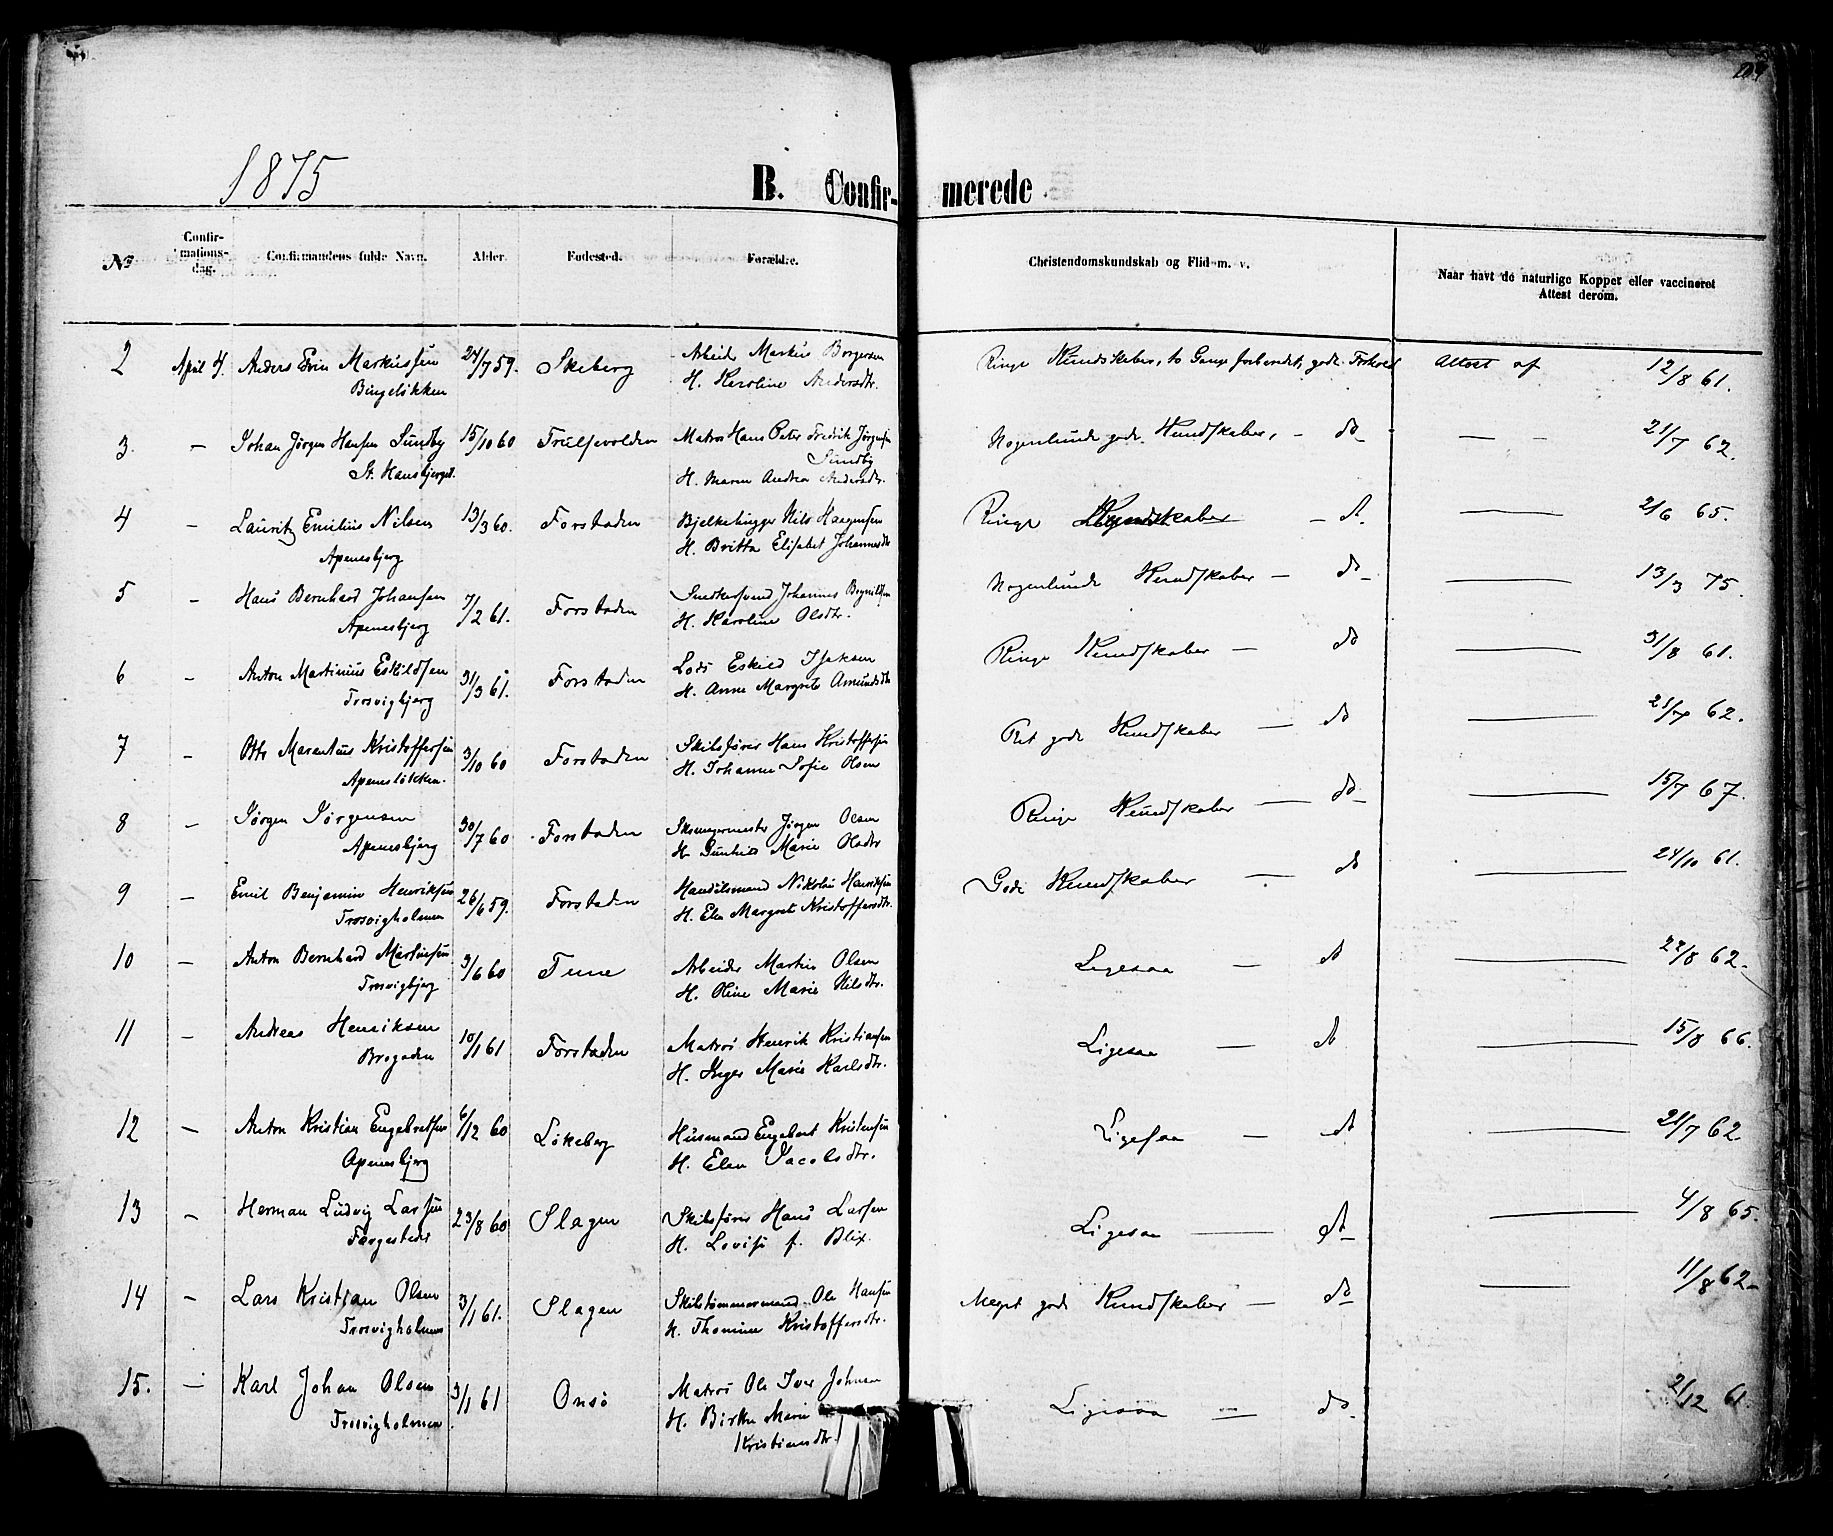 1875
B. Confir- merede
No
Confir-
mations-
dag.
Confirmandens fulde Navn.
Alder.
Fødested.
Forældre.
Christendomskundskab og Flid m. v.
Naar havt de naturlige Kopper eller vaccineret
Attest derom.
2 April 4. Anders Markussen 24/7 59. Skeberg Arbeid Markus Borgersen Ringe Kundskaber, to Gange forberedt, gode Forhold Attest af 12/8 61.
Bingeløkken H. Karoline Andersdtr.
3. – Johan Jørgen Hansen Sundby 15/10 60 Trulsevolden Matros Hans Peter Fredrik Jørgensen Nogenlunde gode Kundskaber, – do – – 21/7 62.
Sundby
St. Hansbjerget. H. Maren Andrea Andersdtr.
4 – Lauritz Emilius Nilsen 13/3 60. Forstaden Bjelkehugger Nils Haagensen Ringe Kundskaber – do 2/6 65.
Apenesbjerg H. Britta Elisabet Johannesdtr
5 – Hans Bernhard Johansen 7/2 61. Forstaden Snedkersvend Johannes Nogenlunde Kundskaber – do 13/3 75.
Apenesbjerg H. Karoline Olsdtr.
6 – Anton Martinius Eskildsen 31/3 61. Forstaden Lods Eskild Isaksen Ringe Kundskaber – do 31/8 61.
Trosvigbjerg H. Anne Margrete Amundsdtr
7 – Otto Marentius Kristoffersen 3/10 60 Forstaden Skibsfører Hans Kristoffersen Ret gode Kundskaber – do 21/7 62.
Apenesløkken. H. Johanne Sofie Olsen
8 – Jørgen Jørgensen 30/7 60 Forstaden Jørgen Olsen Ringe Kundskaber – do 15/7 67.
Apenesbjerg H. Marie Olsdtr
9 – Emil Benjamin Henriksen 26/6 59. Forstaden Handelsmand Nikolai Henriksen Gode Kundskaber – do 24/10 61.
Trosvigholmen H. Elen Margret Kristoffersdtr.
10 – Anton Bernhard Martinsen 3/6 60 Tune Arbeider Martin Olsen Ligesaa – do 22/8 62.
Trosvigbjerg H. Oline Marie Nilsdtr.
11 – Andreas Henriksen 10/1 61 Forstaden Matros Henrik Kristiansen Ligesaa – do 15/8 66.
Brogaden H. Inger Marie Karlsdtr.
12 – Anton Kristian Engebretsen 6/12 60 Løkeberg Husmand Engebret Kristensen Ligesaa – do 21/7 62
Apenesbjerg H. Elen Jacobsdtr.
13 – Herman Ludvig Larsen 23/8 60 Slagen Skibsfører Hans Larsen Ligesaa – do 4/8 65.
Færgestedet H. Lovise f. Blix.
14 – Lars Kristian Olsen 3/1 61. Slagen Skibstømmermand Ole Hansen Meget gode Kundskaber – do 11/8 62 –
Trosvigholmen H. Thomine Kristoffersdtr.
15. – Karl Johan Olsen 3/1 61 Onsø Matros Ole Iver Johnsen Ligesaa – do. 2/12 61.
Trosvigholmen. H. Birthe Marie
Kristiansdtr.